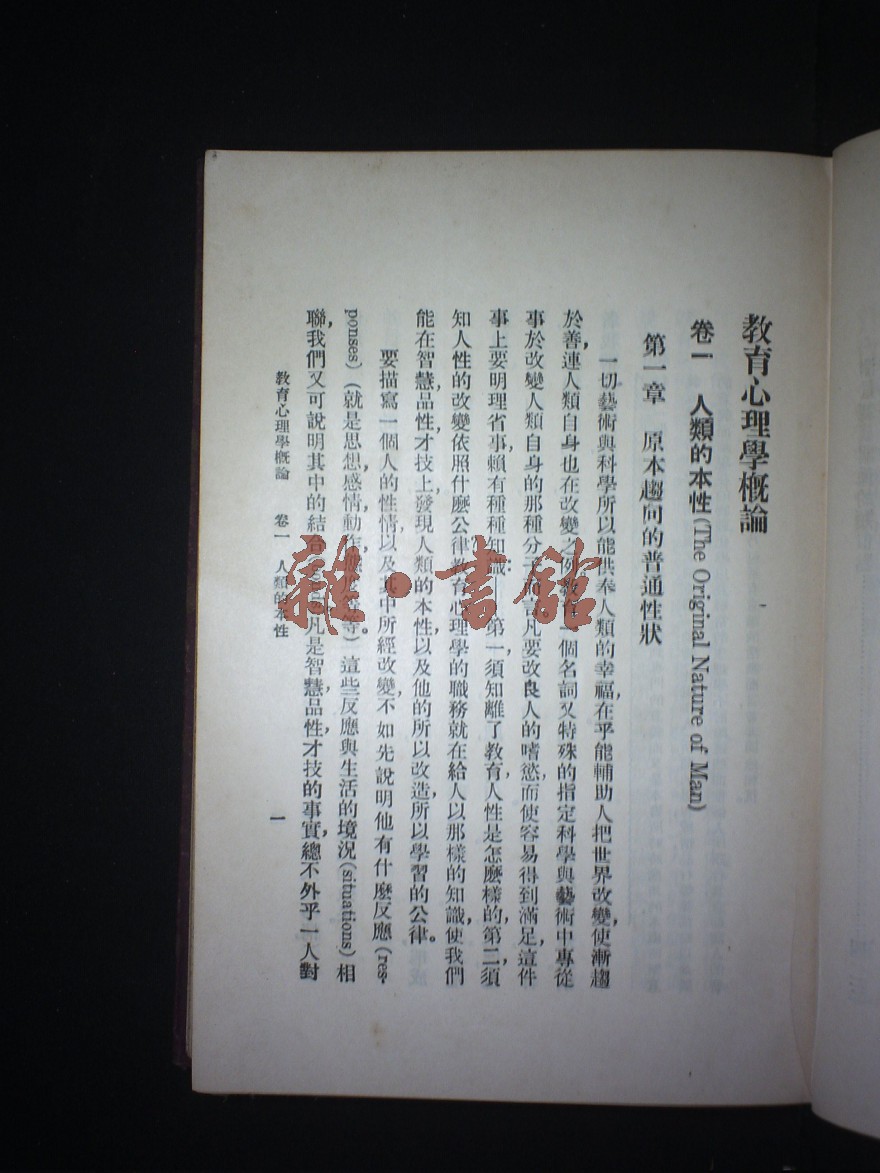 教育心理學概論
卷一　人類的本性(The Original Nature of Man)
第一章　原本趨向的普通性狀
一切藝術與科學所以能供奉人類的幸福，在乎能輔助人把世界改變，使漸趨
於善，連人類自身也在改變之例。教育一個名詞又特殊的指定科學與藝術中專從
事於改變人類自身的那種分子而言。凡要改良人的嗜慾，而使容易得到滿足，這件
事上要明理省事，賴有種種知識：第一，須知離了教育，人性是怎麼樣的，第二，須
知人性的改變依照什麼公律。教育心理學的職務就在給人以那樣的知識，使我們
能在智慧，品性，才技上，發現人類的本性，以及他的所以改造，所以學習的公律。
要描寫一個人的性情，以及其中所經改變，不如先說明他有什麼反應(res-
ponses)（就是思想，感情，動作，等等）。這些反應與生活的境況(situations)相
聯，我們又可說明其中的結合 凡是智慧，品性，才技的事實，總不外乎一人對
教育心理學概論　卷一　人類的本性　一
雜·書館